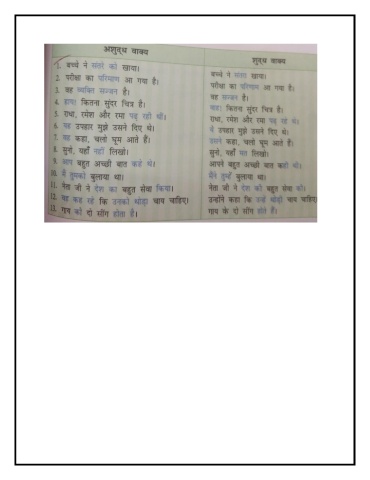 अशुद्ध वाक्य
शुद्ध वाक्य
1. बच्चे ने संतरे को खाया।
बच्चे ने संतरा खाया।
2. परीक्षा का परिमाण आ गया है।
परीक्षा का परिणाम आ गया है।
3. वह व्यक्ति सज्जन है।
वह सज्जन है।
4. हाय! कितना सुंदर चित्र है।
वाह! कितना सुंदर चित्र है।
5. राधा, रमेश और रमा पढ़ रही थीं।
राधा, रमेश और रमा पढ़ रहे थे।
6. यह उपहार मुझे उसने दिए थे।
ये उपहार मुझे उसने दिए थे।
7. वह कहा, चलो घूम आते हैं।
उसने कहा, चलो घूम आते हैं।
8. सुनो, यहाँ नहीं लिखो।
सुनो, यहाँ मत लिखो।
9. आप बहुत अच्छी बात कहे थे।
आपने बहुत अच्छी बात कही थी।
10. मैं तुमको बुलाया था।
मैंने तुम्हें बुलाया था।
11. नेता जी ने देश का बहुत सेवा किया।
नेता जी ने देश की बहुत सेवा की।
12. वह कह रहे कि उनको थोड़ा चाय चाहिए।
उन्होंने कहा कि उन्हें थोड़ी चाय चाहिए।
13. गाय को दो सींग होता है।
गाय के दो सींग होते हैं।